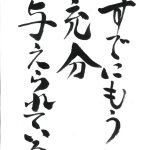 すでにもう
充分
与えられている